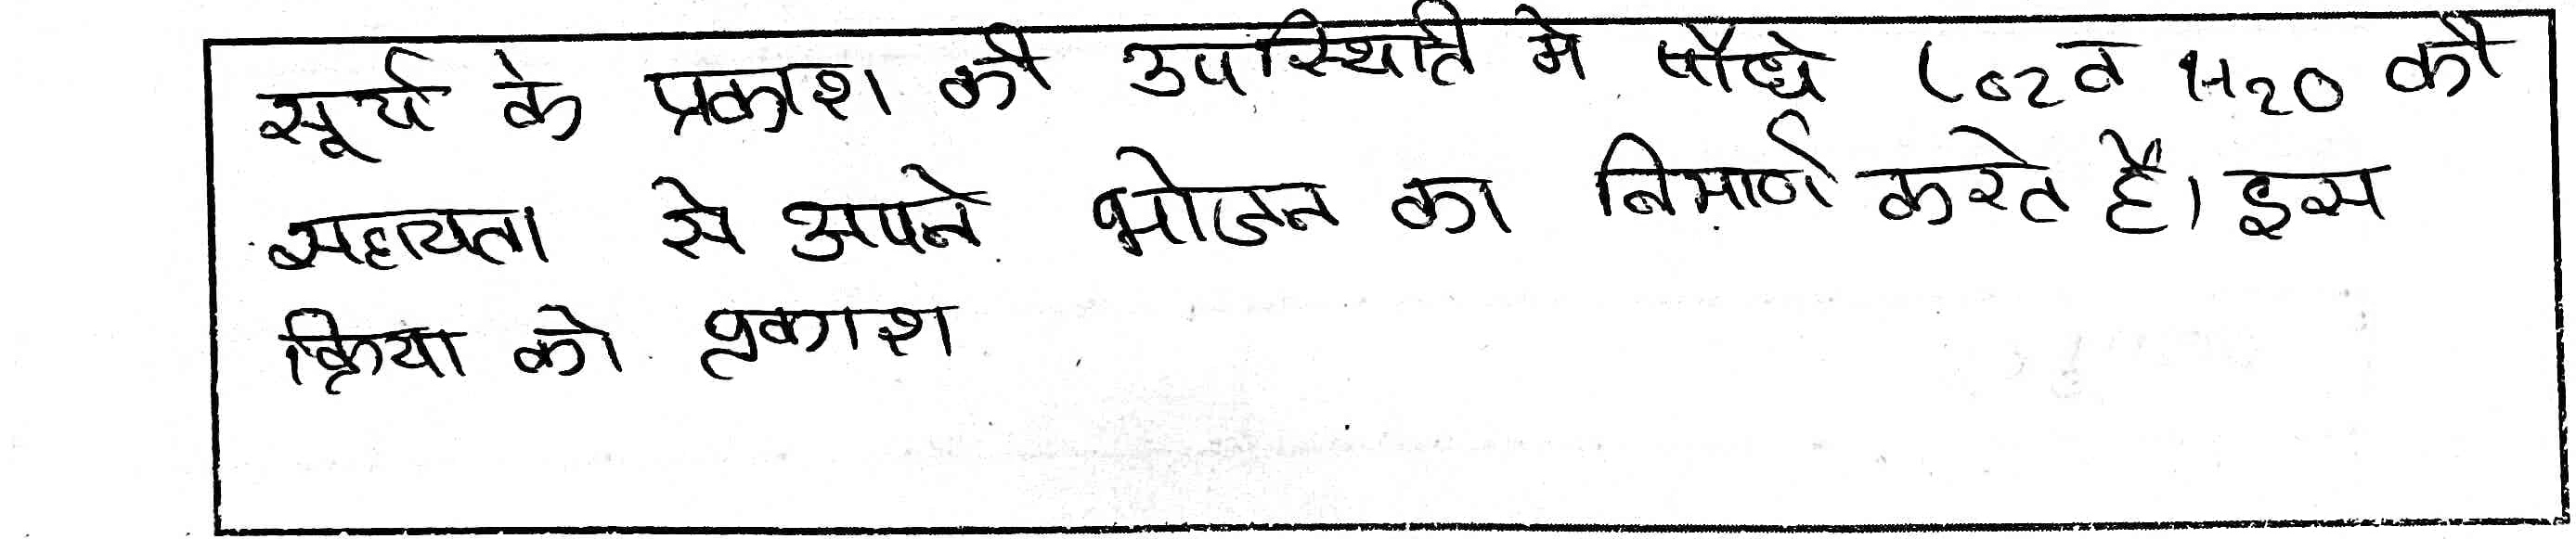 सूर्य के प्रकाश की उपस्थिति मे पौधे CO2 व H2O की
सहायता से अपने भोजन का निमार्ण करते है। इस
क्रिया को प्रकाश